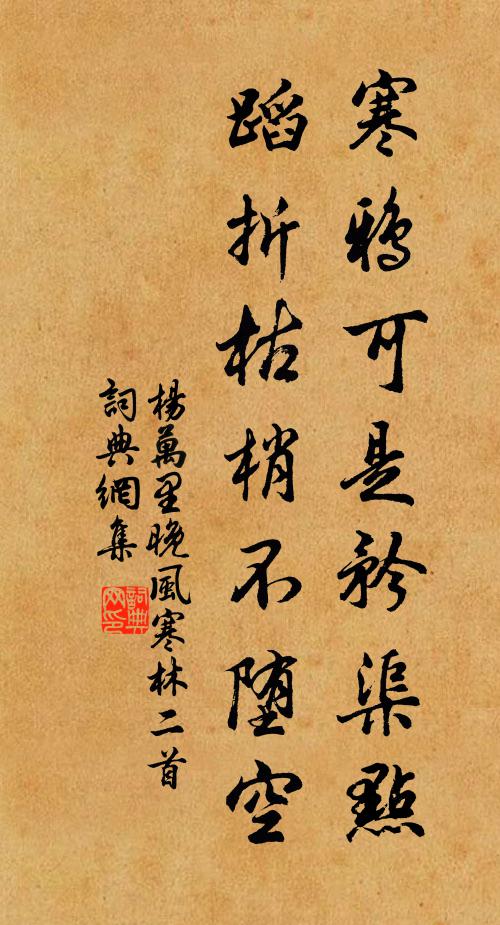 寒鴉可是矜渠點
蹈折枯梢不堕空
楊萬里晚風寒林二首
詞典網集
詞典
网印